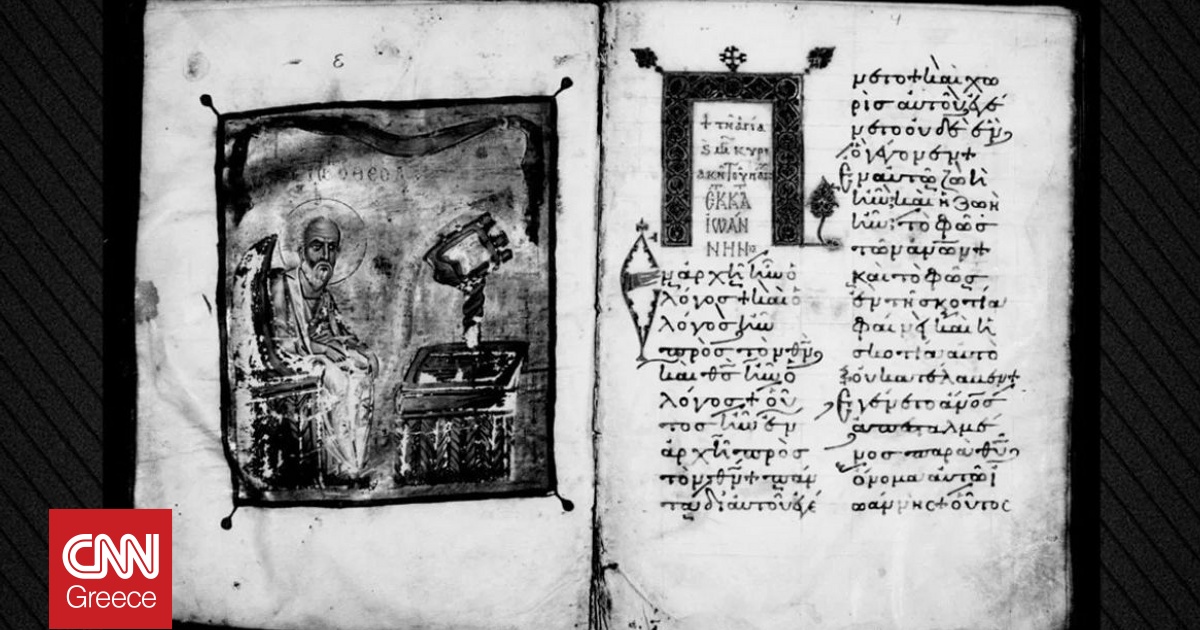 ε
Ο ΘΕΟΛ
+ τῆ ἁγία
κυρι
ακῆ τοῦ πάσχα
ἐκ κα
ἰωάν
νην
Ἐν ἀρχῆ ἦν ὁ
λόγος + καὶ ὁ
λόγος ἦν
πρὸς τὸν θν
καὶ θς ἦν ὁ
λόγος + οὗ
τος ἦν ἐν
ἀρχῆ πρὸς
τὸν θν + πάν
τα δι αὐτοῦ ἐγέ
νετο + καὶ χω
ρὶς αὐτοῦ ἐγέ
νετο οὐδὲ ἕν
ὃ γέγονεν +
Ἐν αὐτῶ ζωὴ
ἦν καὶ ἡ ζωὴ
ἦν τὸ φῶς
τῶν ἀνων +
καὶ τὸ φῶς
ἐν τῆ σκοτία
φαίνει καὶ ἡ
σκοτία αὐτὸ
οὐ κατέλαβεν +
Ἐγένετο ἄνος
ἀπεσταλμέ
νος παρὰ θυ
ὄνομα αὐτῶ ἰ
ωάννης + οὗτος
CNN
Greece